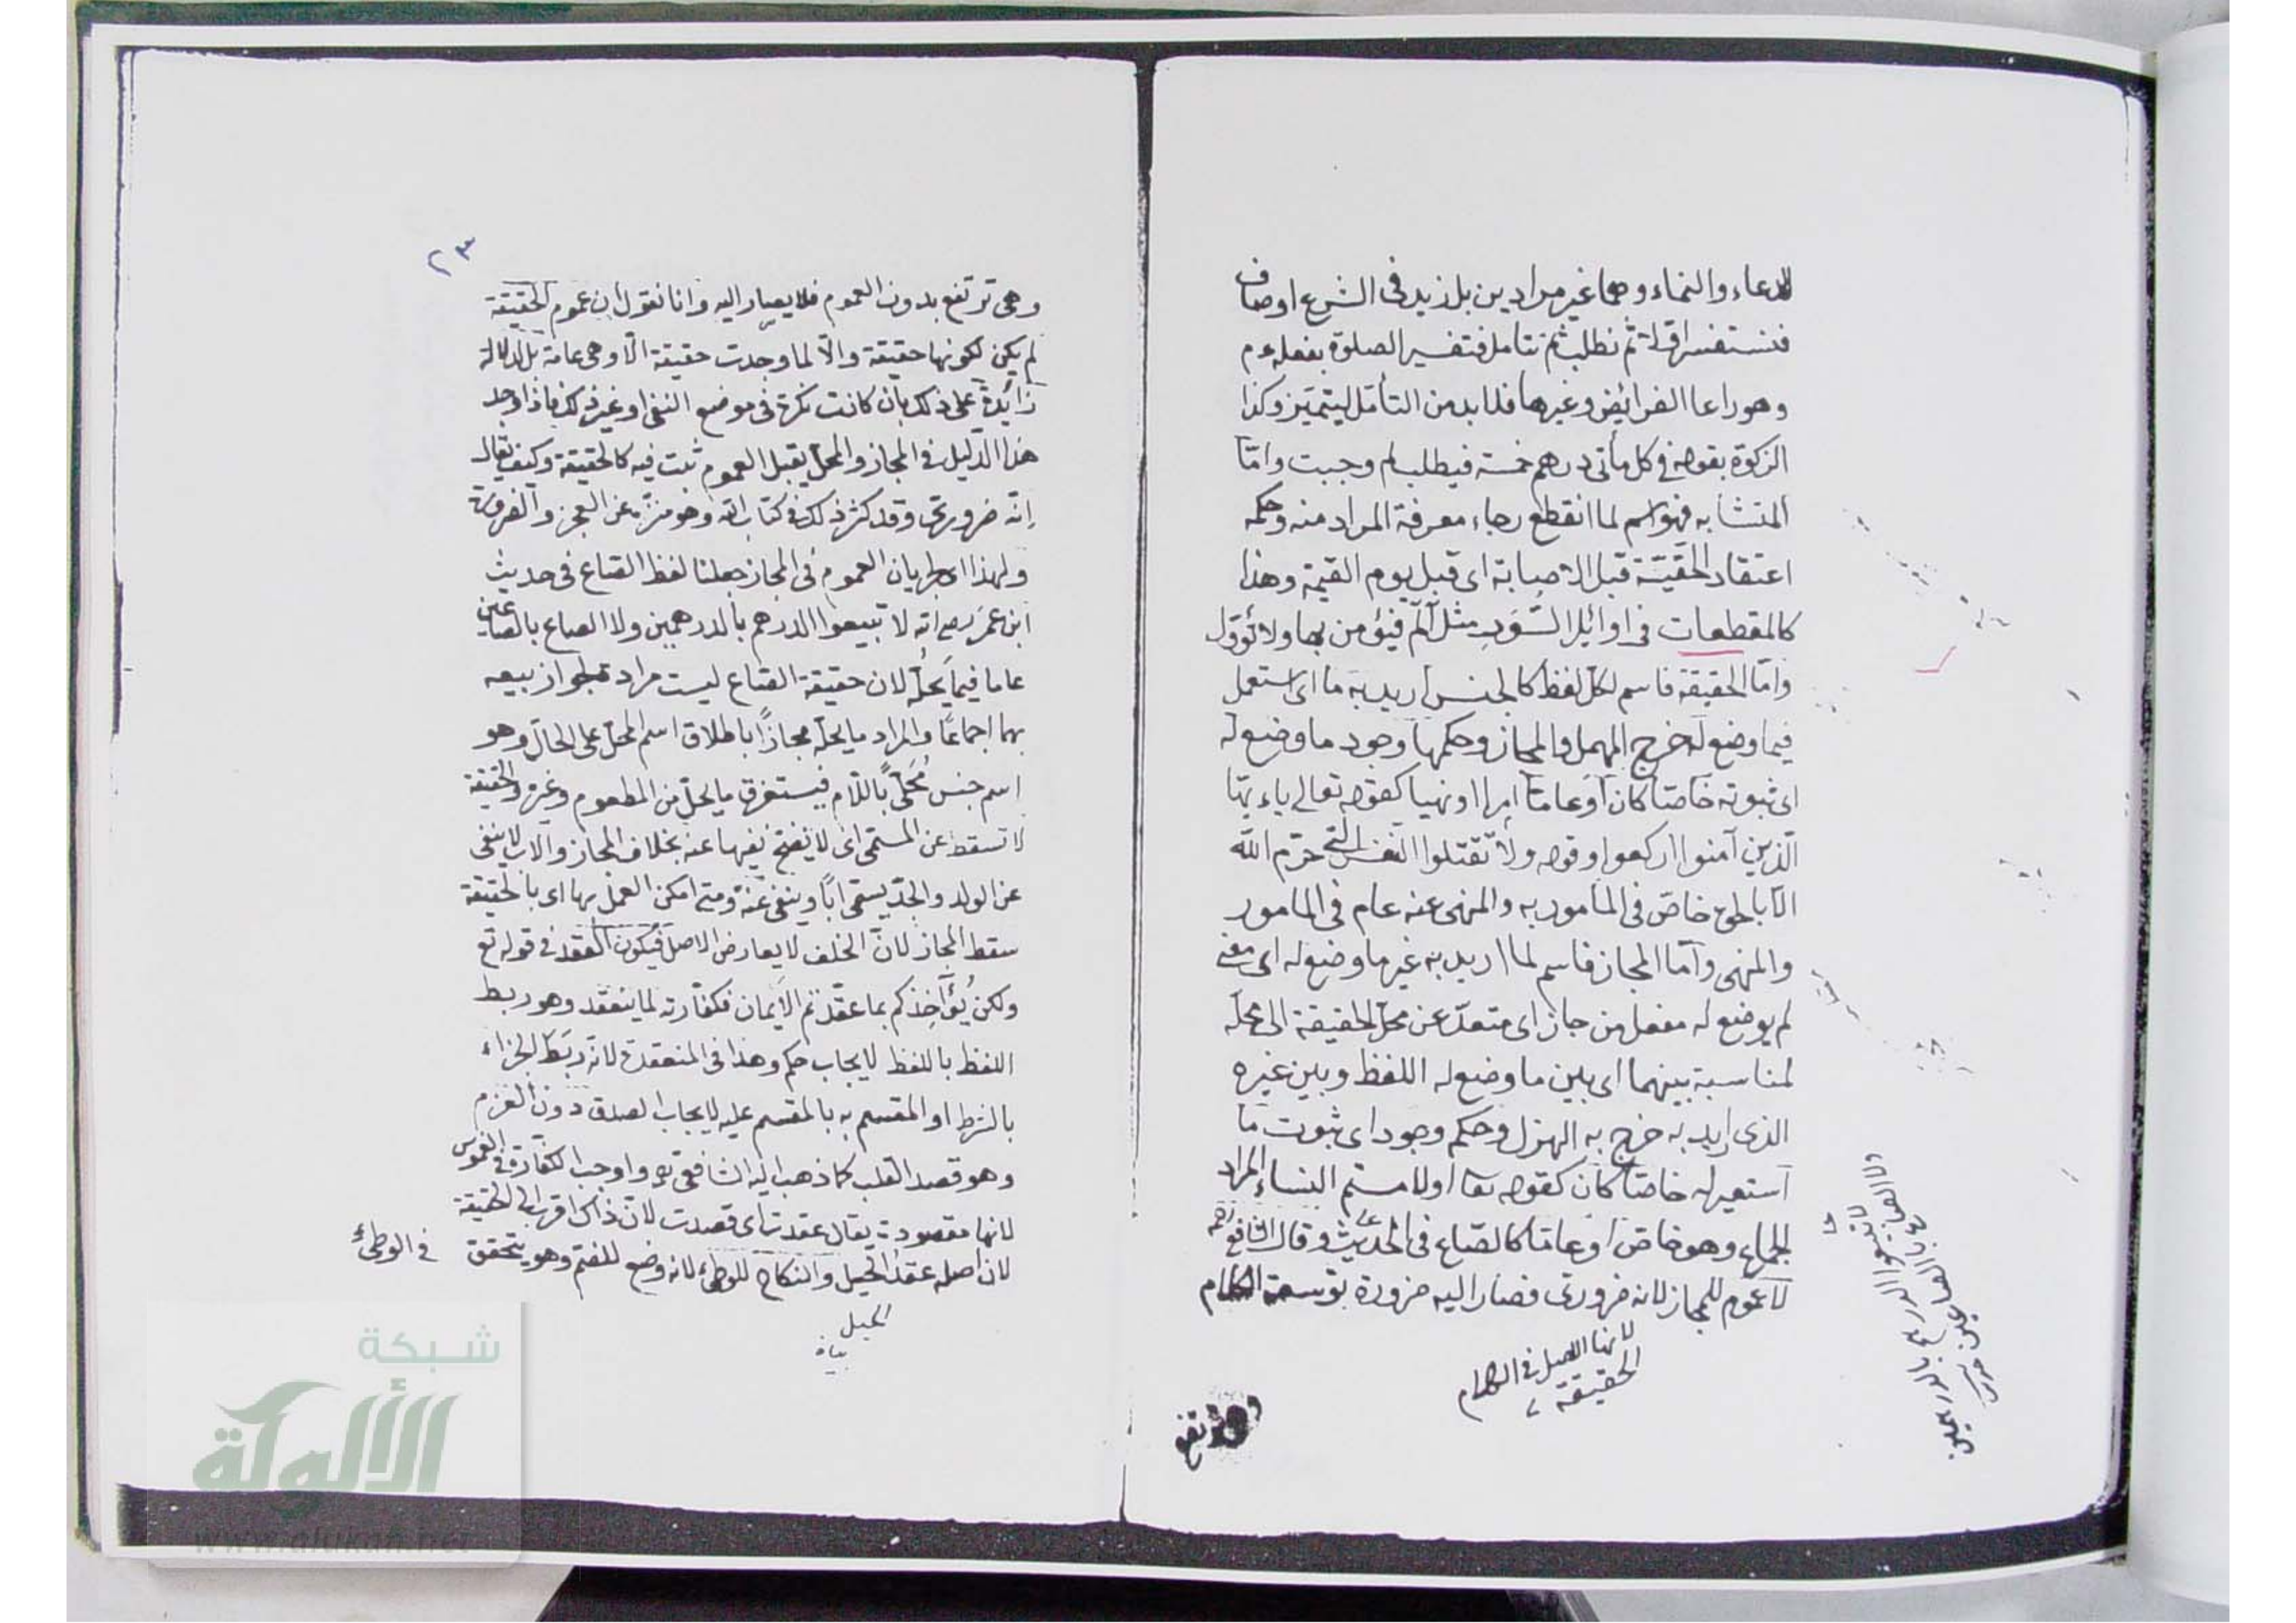 للدعاء والنماء وهما غير مرادين بل زيد فى الشرع اوصاف
فنستفسر اولا ثم نطلب ثم نتامل فتفسير الصلوة بفعله عم
وهو راعا الفرائض وغيرها فلا بد من التأمل ليتميز وكذا
الزكوة بقوله في كل مأتى درهم خمسة فيطلب لم وجبت وامّا
المتشابه فهو اسم لما انقطع رجاء معرفة المراد منه وحكمه
اعتقاد الحقيّة قبل الاصابة اى قبل يوم القيمة وهذا
كالمقطعات فى اوائل السّوَر مثل آلم فيؤمن بها ولا تؤوّل
وامّا الحقيقة فاسم لكل لفظ كالجنس اريد به ما اى استعمل
فيما وضع له خرج المهمل والمجاز وحكمها وجود ما وضع له
اى ثبوته خاصّا كان او عامّا امرا او نهيا كقوله تعالى ياءيها
الّذين آمنوا اركعوا وقوله ولا تقتلوا النفس التى حرّم الله
الا بالحق خاصّ فى المأمور به والمنهى عنه عام فى المامور
والمنهى وامّا المجاز فاسم لما اريد به غير ما وضع له اى معنى
لم يوضع له مفعل من جاز اى متعدّ عن محلّ الحقيقة الى محلّه
لمناسبة بينهما اى بين ما وضع له اللفظ وبين غيره
الذى اريد به خرج به الهزل وحكمه وجود اى ثبوت ما
استعير له خاصّا كان كقوله تعا او لامستم النساء المراد
الجماع وهو خاص او عامّا كالصّاع فى الحديث وقال الشافعى رحمه
لا عموم للمجاز لانه ضرورى فصار اليه ضرورة توسعة الكلام
لانها الاصل فى الكلام
الحقيقة
وهى ترتفع
ولا الصاع بالصاعين
لا تبيعوا الدرهم بالدرهمين
٢٣
وهى ترتفع بدون العموم فلا يصار اليه وانا نقول ان عموم الحقيقة
لم يكن لكونها حقيقة والّا لما وجدت حقيقة الّا وهى عامة بل لدلالة
زائدة على ذلك بأن كانت نكرة فى موضع النفى او غير ذلك فاذا وجد
هذا الدّليل فى المجاز والمحلّ يقبل العموم ثبت فيه كالحقيقة وكيف يقال
إنّه ضرورىّ وقد كثر ذلك فى كتاب الله وهو منزّه عن العجز والضرورة
ولهذا اى لجريان العموم فى المجاز جعلنا لفظ الصّاع فى حديث
ابن عمر رضى انه لا تبيعوا الدرهم بالدرهمين ولا الصاع بالصاعين
عاما فيما يحلّه لان حقيقة الصّاع ليست مرادة لجواز بيعه
بهما اجماعًا والمراد ما يحلّه مجازًا باطلاق اسم المحلّ على الحالّ وهو
اسم جنس مُحَلّىً باللّام فيستغرق ما يحلّ من المطعوم وغيره والحقيقة
لا تسقط عن المسمّى اى لا يصحّ نفيها عنه بخلاف المجاز والاب لا ينفى
عن الولد والجدّ يسمّى ابًا وينفى عنه ومتى امكن العمل بها اى بالحقيقة
سقط المجاز لانّ الخلف لا يعارض الاصل فيكون العقد فى قوله تع
ولكن يُؤَآخِذكم بما عقّدتم الأيمان فكفّارته لما ينعقد وهو ربط
اللفظ باللفظ لايجاب حكم وهذا فى المنعقدة لانّه ربط الجزاء
بالشرط او المقسم به بالمقسم عليه لايجاب الصدق دون العزم
وهو قصد القلب كما ذهب اليه الشافعى رح واوجب الكفّارة فى الغموس
لانها مقصودة يقال عقدت اى قصدت لانّ ذاك اقرب الى الحقيقة
لان اصله عقد الحبل والنكاح للوطئ لانه وضع للضمّ وهو يتحقق فى الوطئ
الحبل
شبكة
الألوكة
www.alukah.net